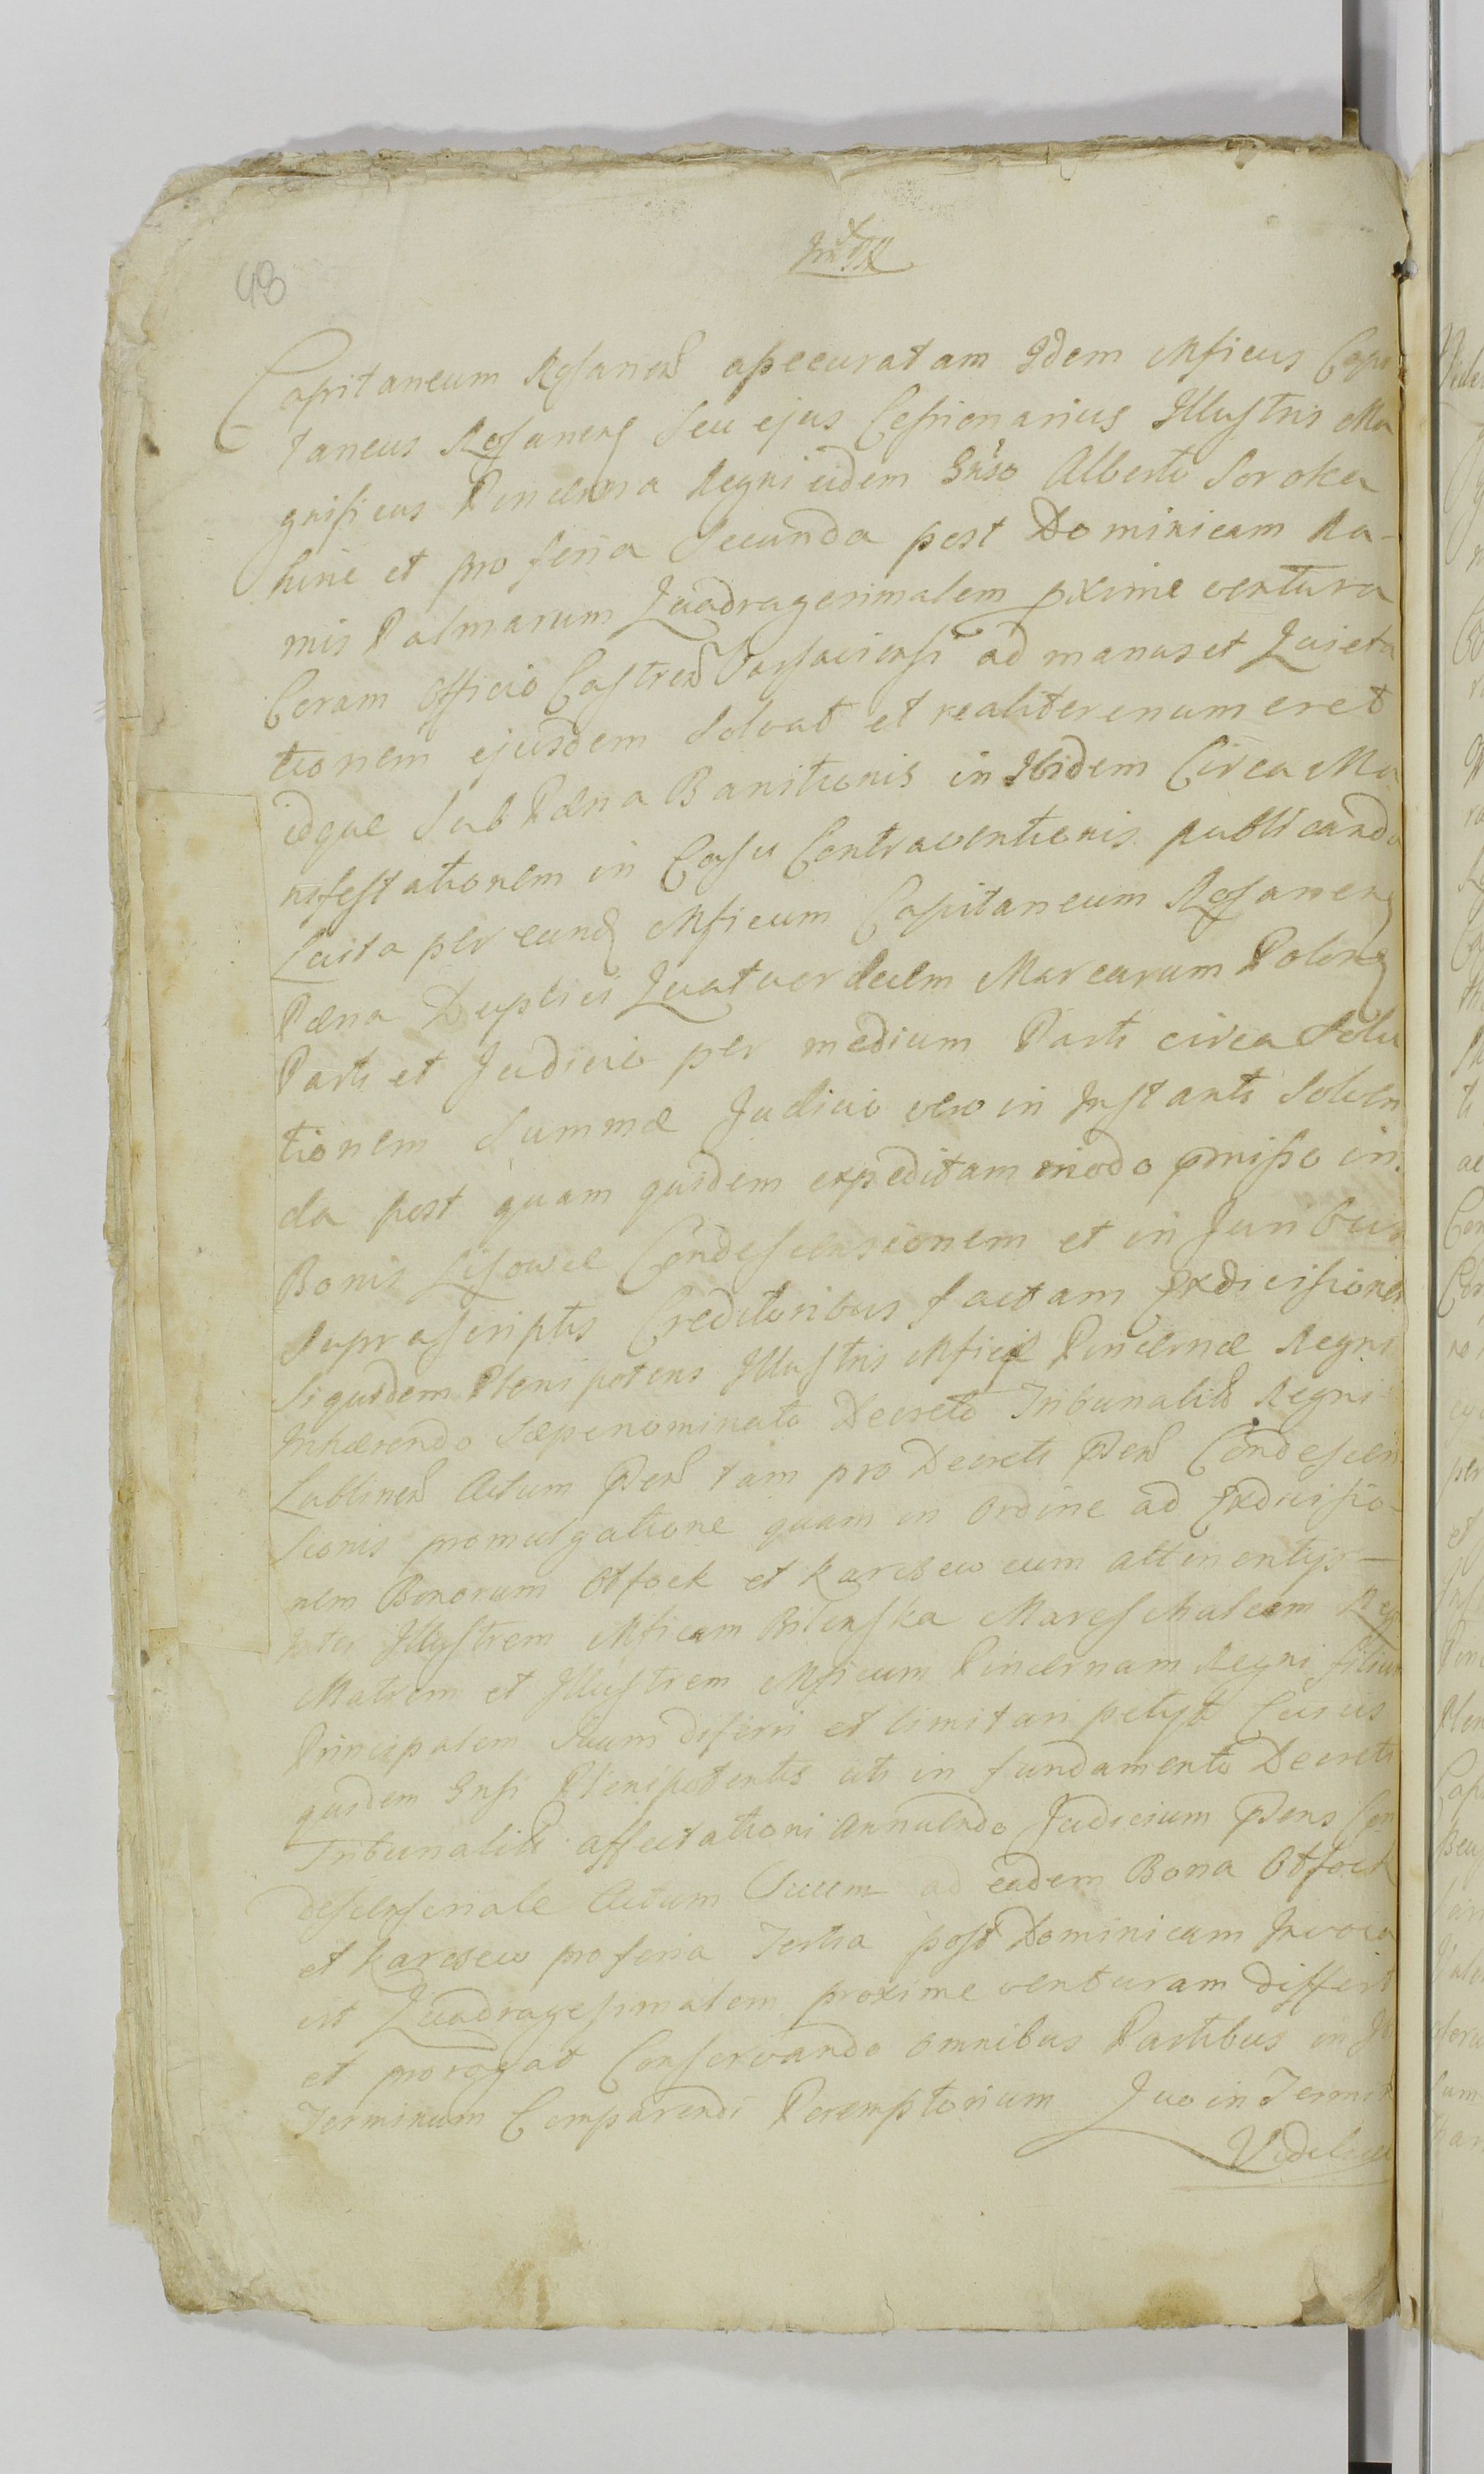 48
Capitaneum Rosanen assecuratam Idem Mficus Capi
taneus Rosanens seu ejus Cessionarius Illustris Ma
gnificus Pincerna Regni eidem Gnso Alberto Soroka
hinc et pro feria Secunda post Dominicam Ra-
mis Palmarum Quadragesimalem pxime ventura
Coram Officio Castren Varsaviensi ad manus et Quieta
tionem ejusdem Solvat et realiter enumeret
idque sub Pæna Banitionis in Ibidem Circa Ma
nifestationem in Casu Contraventionis publicanda
Luita per eund Mficum Capitaneum Rosanens
Pæna Duplici Quatuordecim Marcarum Polon
Parti et Judicio per medium Parti circa Solu
tionem Summæ Judicio vero in Instanti Solven
da post quam quidem expeditam modo pmisso in
Bonis Lisowce Condescensionem et in Juribus
Suprascriptis Creditoribus factam Exdivisionem
Siquidem Plenipotens Illustris Mfici Pincernæ Regni
Inhærendo Sæpenominato Decreto Tribunalis Regni
Lublinen Actum Pden tam pro Decreti Pden Condescen
sionis promulgatione quam in Ordine ad Exdivisio-
nem Bonorum Otfock et Karczew cum attinentys
Inter Illustrem Mficam Bilinska Mareschalcam Reg
Matrem et Illustrem Mficum Pincernam Regni filium
Principalem Suum diferri et limitari petyt Cujus
quidem Gnsi Plenipotentis uti in fundamento Decreti
Tribunalis affectationi Annuendo Judicium Pdens Con
descensoriale Actum Suum ad eadem Bona Otfock
et Karczew pro feria Tertia post Dominicam Invoca
vit Quadragesimalem proxime venturam differt
et prorogat Conservando omnibus Partibus in
Terminum Comparendi Peremptorium Quo in Termin
Videlicet